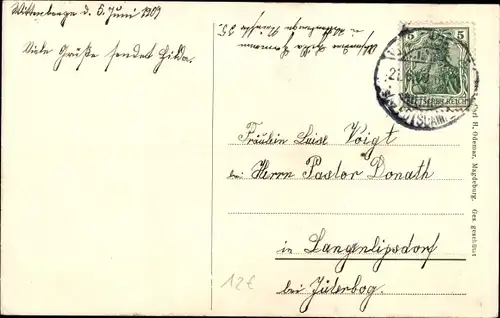 Wittenberge d. 5. Juni 1909
Viele Grüße sendet Hilda.
5 5
DEUTSCHES REICH
Fräulein Luise Voigt
bei Herrn Pastor Donath
in Langenlipsdorf
bei Jüterbog.
Carl H. Odemar, Magdeburg. Ges. geschützt
12€